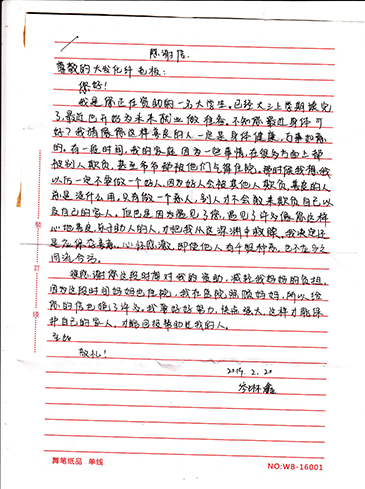 感谢信
尊敬的大发化纤老板:
您好!
我是您正在资助的一名大学生。已经大三上学期读完
了,最近也开始为未来就业做准备。不知您最近身体可
好?我猜像您这样善良的人一定是身体健康,万事如意
的。有一段时间,我的家庭因为一些事情,在很多方面上都
被别人欺负,甚至爷爷都被他们气得住院。那时候我想,我
以后一定不要做一个好人,因为好人会被其他人欺负,善良的人
前是没什么用,只有做一个坏人,别人才不会敢来欺负自己以
及自己的家人。但也是因为遇见了您,遇见了许多像您这样
心地善良、乐于助人的人,才把我从这深渊中救赎。我决定还
是应保存善意、心怀感激,即使他人有千般种恶,也不应与之
同流合污。
很感谢您这段时间对我的资助,减轻我妈妈的负担,
因为这段时间妈妈也住院,我在医院照顾妈妈,所以给
您的信也晚了许多。我要好好努力,快点强大,这样才能保
护自己的家人,才能回报帮助过我的人。
至此
敬礼!
2019.2.20
舞笔纸品 单线
NO:WB-16001